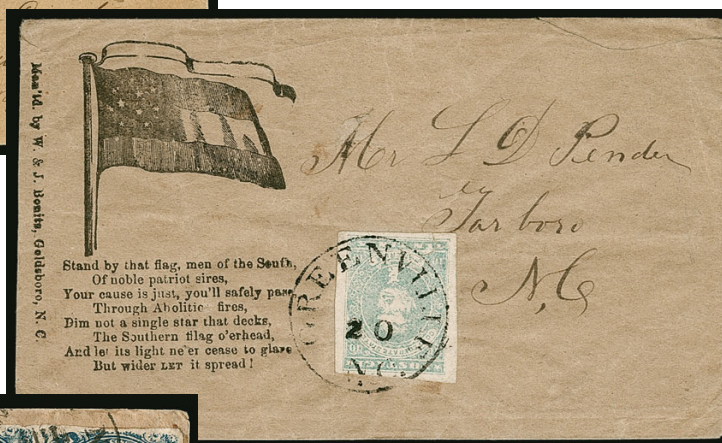 Man'fd. by W. & J. Bonitz, Goldsboro, N. C.
Stand by that flag, men of the South,
Of noble patriot sires,
Your cause is just, you'll safely pass
Through Abolitic fires,
Dim not a single star that decks,
The Southern fllag o'erhead,
And let its light ne'er cease to glare
But wider LET it spread!
Mr L D Pender
Tarboro
N.C
GREENVILLE
20
N.C.